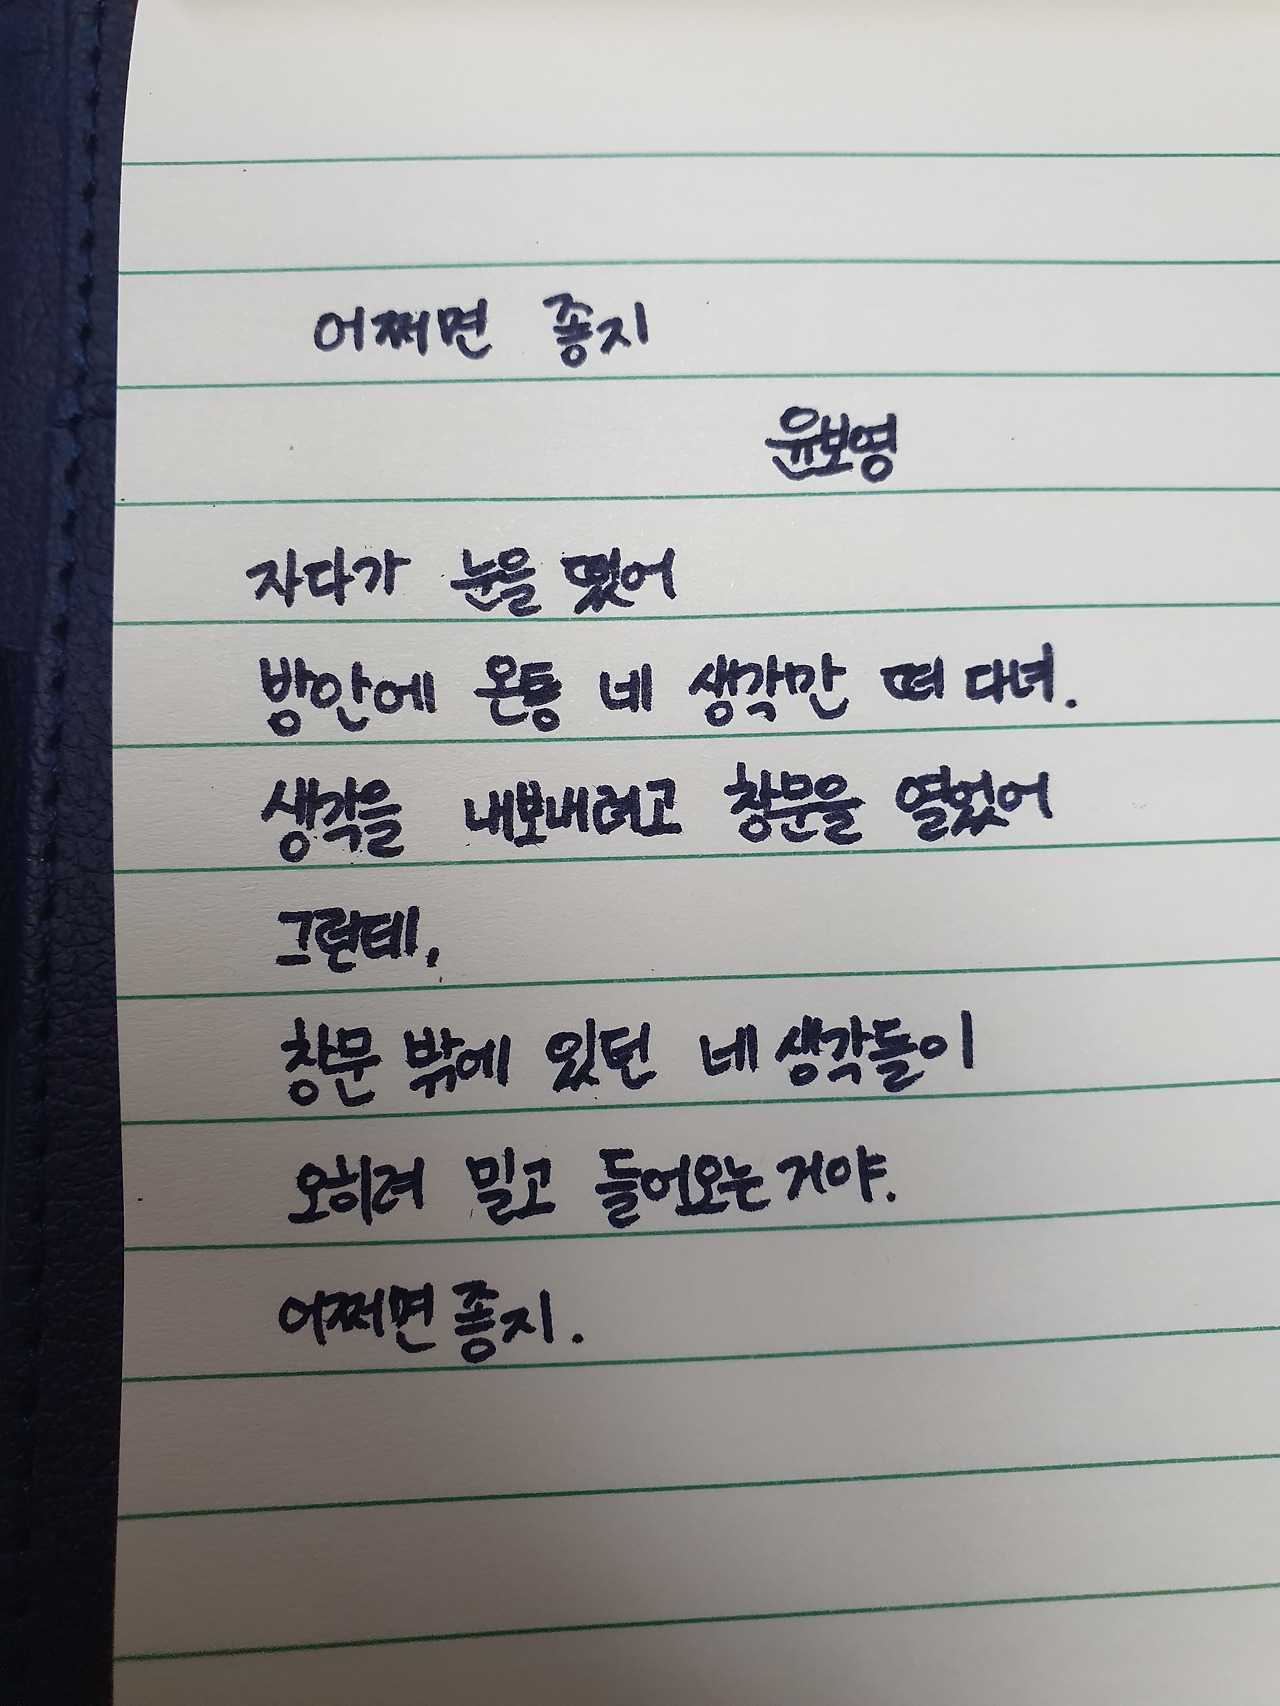 어쩌면 좋지
윤보영
자다가 눈을 떴어
방안에 온통 네 생각만 떠 다녀.
생각을 내보내려고 창문을 열었어
그런데,
창문 밖에 있던 네 생각들이
오히려 밀고 들어오는 거야.
어쩌면 좋지.